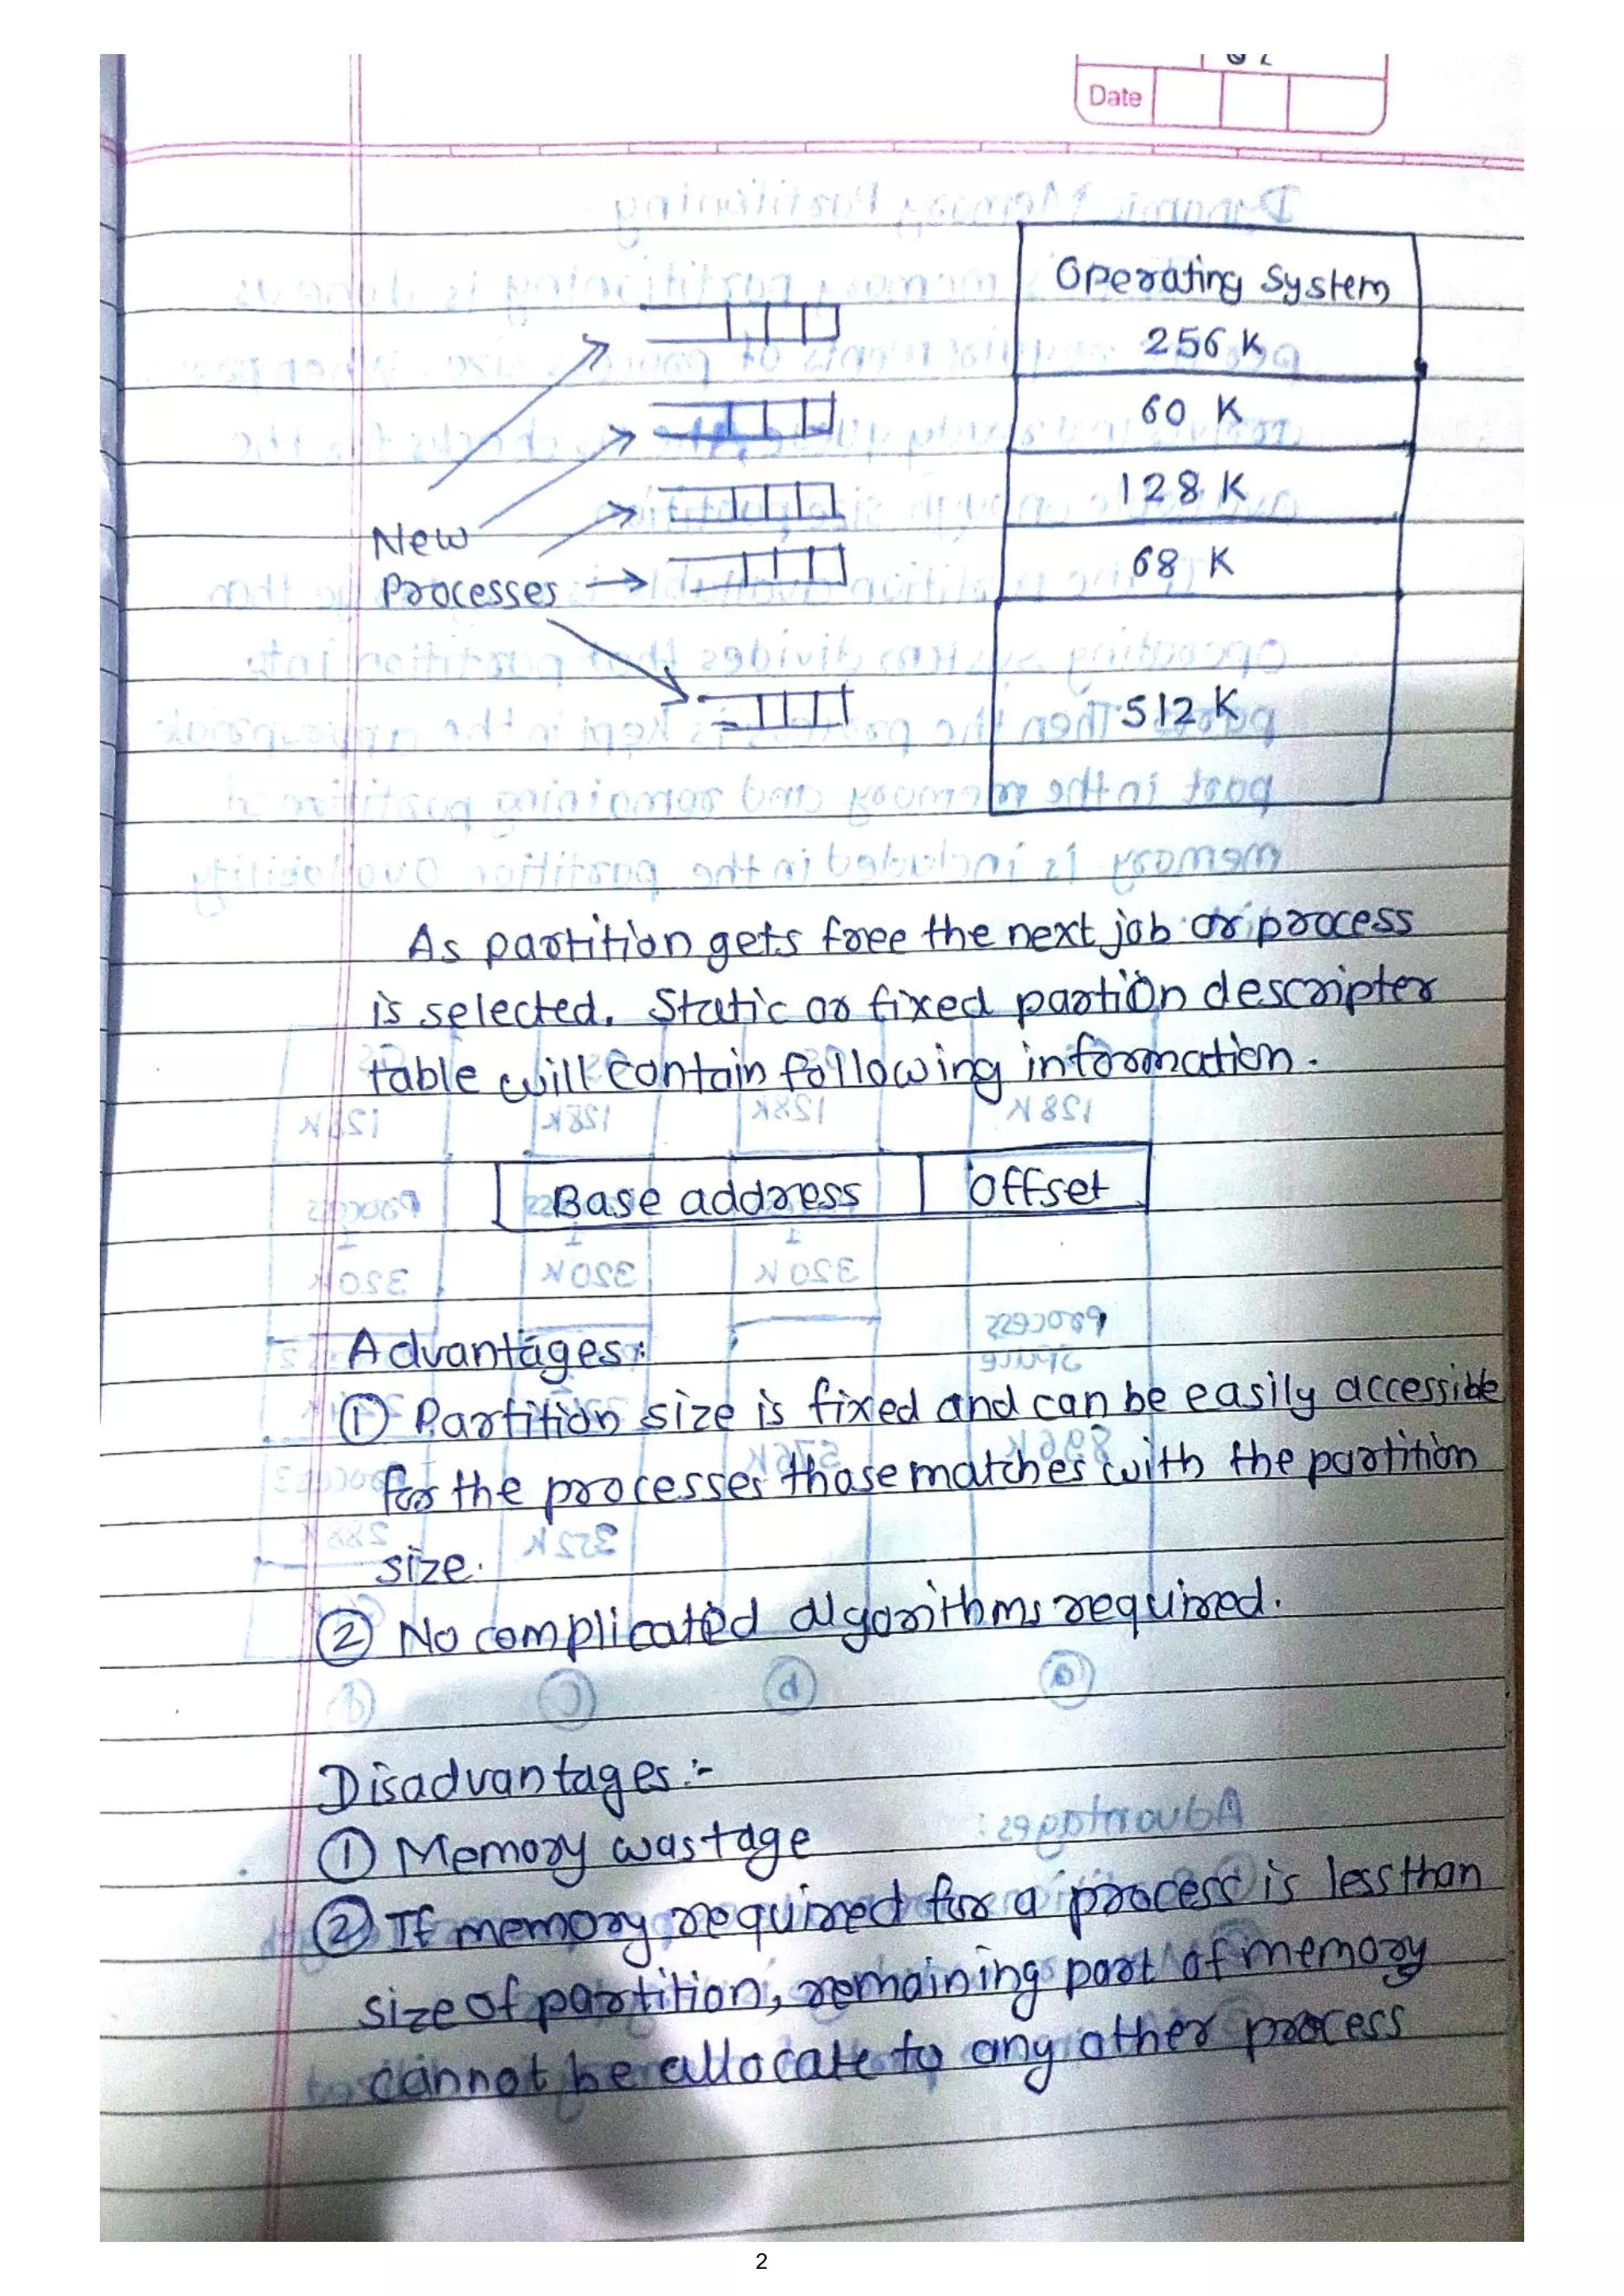 Date
Operating System
256 K
60 K
128 K
New
68 K
Processes
512 K
As partition gets free the next job or process
is selected. Static or fixed partion descripter
table will contain following information.
Base address offset
Advantages:
① Partition size is fixed and can be easily accessible
for the processes those matches with the partition
size.
② No complicated algorithms required.
Disadvantages :-
① Memory wastage
② If memory required for a process is less than
size of partition, remaining part of memory
cannot be allocate to any other process
2